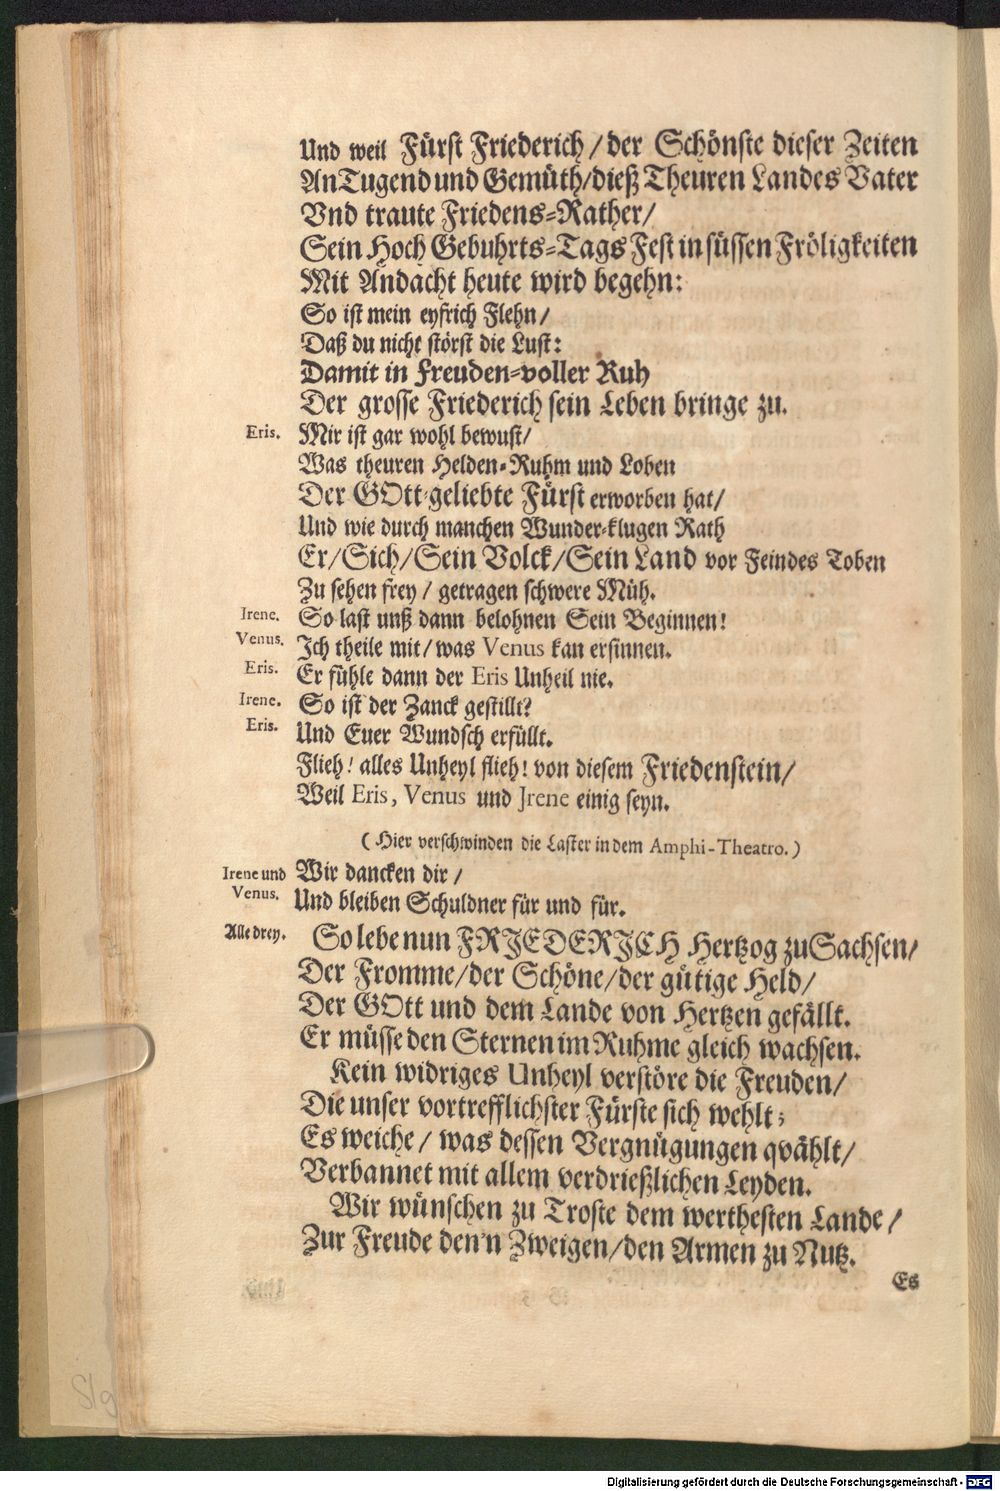 Und weil Fürst Friederich / der Schönste dieser Zeiten
An Tugend und Gemüth / dieß Theuren Landes Vater
Vnd traute Friedens-Rather /
Sein Hoch Gebuhrts-Tags Fest in süssen Fröligkeiten
Mit Andacht heute wird begehn:
So ist mein eyfrich Flehn /
Daß du nicht störst die Lust:
Damit in Freuden-voller Ruh
Der grosse Friederich sein Leben bringe zu.
Eris. Mir ist gar wohl bewust /
Was theuren Helden-Ruhm und Loben
Der GOtt-geliebte Fürst erworben hat /
Und wie durch manchen Wunder-klugen Rath
Er / Sich / Sein Volck / Sein Land vor Feindes Toben
Zu sehen frey / getragen schwere Müh.
Irene. So last unß dann belohnen Sein Beginnen!
Venus. Ich theile mit / was Venus kan ersinnen.
Eris. Er fühle dann der Eris Unheil nie.
Irene. So ist der Zanck gestillt?
Eris. Und Euer Wundsch erfüllt.
Flieh! alles Unheyl flieh! von diesem Friedenstein /
Weil Eris, Venus und Irene einig seyn.
( Hier verschwinden die Laster in dem Amphi-Theatro. )
Irene und Wir dancken dir /
Venus. Und bleiben Schuldner für und für.
Alle drey. So lebe nun FRIEDERICH Hertzog zu Sachsen /
Der Fromme / der Schöne / der gütige Held /
Der GOtt und dem Lande von Hertzen gefällt.
Er müsse den Sternen im Ruhme gleich wachsen.
Kein widriges Unheyl verstöre die Freuden /
Die unser vortrefflichster Fürste sich wehlt;
Es weiche / was dessen Vergnügungen qvählt /
Verbannet mit allem verdrießlichen Leyden.
Wir wünschen zu Troste dem werthesten Lande /
Zur Freude den'n Zweigen / den Armen zu Nutz.
Es
Slg
Digitalisierung gefördert durch die Deutsche Forschungsgemeinschaft - DFG